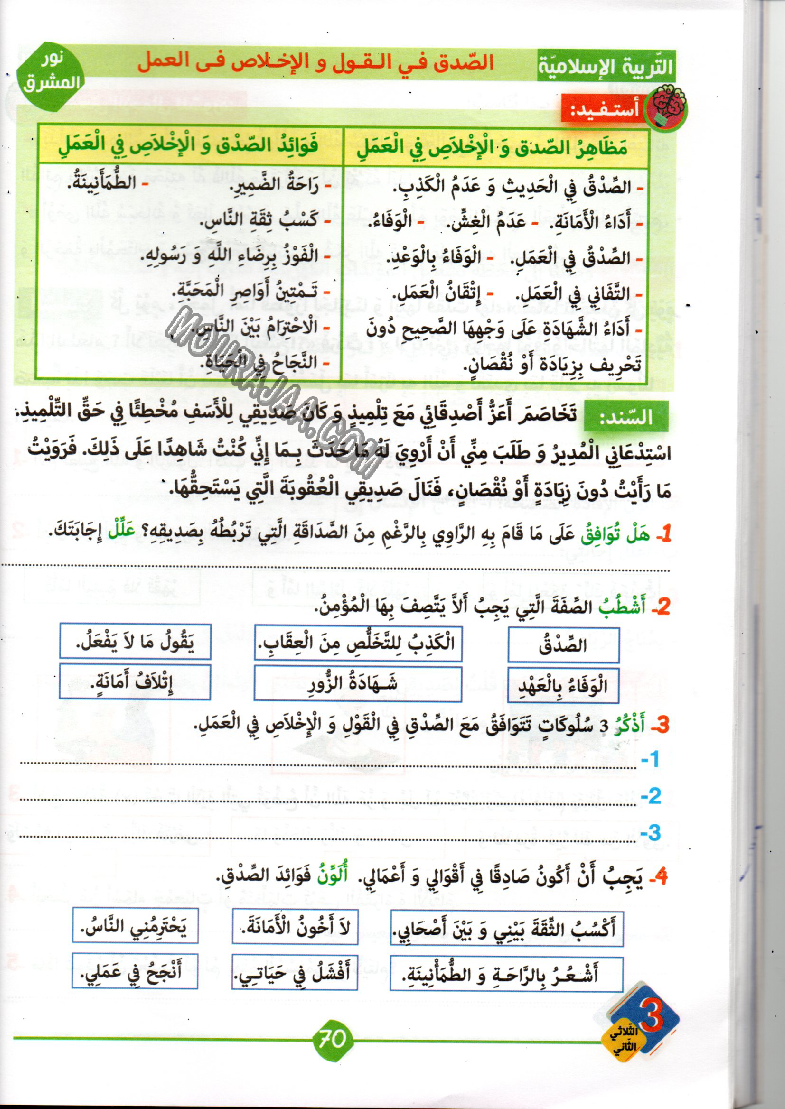 نور
المشرق
التّربية الإسلاميّة
الصّدق في القول و الإخلاص في العمل
أستفيد:
مَظَاهِرُ الصّدق وَ الْإِخْلَاصِ فِي الْعَمَلِ
فَوَائِدُ الصّدْقِ وَ الْإِخْلَاصِ فِي الْعَمَلِ
- الصِّدْقُ فِي الْحَدِيثِ وَ عَدَمُ الْكَذِبِ.
- أَدَاءُ الْأَمَانَةِ. - عَدَمُ الْغِشِّ. - الْوَفَاءُ.
- الصِّدْقُ فِي الْعَمَلِ. - الْوَفَاءُ بِالْوَعْدِ.
- التَّفَانِي فِي الْعَمَلِ. - إِتْقَانُ الْعَمَلِ.
- أَدَاءُ الشَّهَادَةِ عَلَى وَجْهِهَا الصَّحِيحِ دُونَ
تَحْرِيف بِزِيَادَة أَوْ نُقْصَانٍ.
- رَاحَةُ الضَّمِيرِ. - الطُّمَأْنِينَةُ.
- كَسْبُ ثِقَةِ النَّاسِ.
- الْفَوْزُ بِرِضَاءِ اللَّهِ وَ رَسُولِهِ.
- تَـمْتِينُ أَوَاصِرِ الْمَحَبَّةِ.
- الْاحْتِرَامُ بَيْنَ النَّاسِ.
- النَّجَاحُ فِي الْحَيَاةِ.
MOURAJAA.COM
السّند: تَخَاصَمَ أَعَزُّ أَصْدِقَائِي مَعَ تِلْمِيذٍ وَ كَانَ صَدِيقِي لِلْأَسَفِ مُخْطِئًا فِي حَقِّ التِّلْمِيذِ.
اسْتِدْعَانِي الْمُدِيرُ وَ طَلَبَ مِنِّي أَنْ أَرْوِيَ لَهُ مَا حَدَثَ بِـمَا إِنِّي كُنْتُ شَاهِدًا عَلَى ذَلِكَ. فَرَوَيْتُ
مَا رَأَيْتُ دُونَ زِيَادَةٍ أَوْ نُقْصَانٍ، فَنَالَ صَدِيقِي الْعُقُوبَةَ الَّتِي يَسْتَحِقُّهَا.
1- هَلْ تُوَافِقُ عَلَى مَا قَامَ بِهِ الرَّاوِي بِالرَّغْمِ مِنَ الصَّدَاقَةِ الَّتِي تَرْبُطُهُ بِصَدِيقِهِ؟ عَلِّلْ إِجَابَتَكَ.
2- أَشْطُبُ الصِّفَةَ الَّتِي يَجِبُ أَلاَّ يَتَّصِفَ بِهَا الْمُؤْمِنُ.
الصِّدْقُ
الْكَذِبُ لِلتَّخَلُّصِ مِنَ الْعِقَابِ.
يَقُولُ مَا لاَ يَفْعَلُ.
الْوَفَاءُ بِالْعَهْدِ
شَـهَادَةُ الزُّورِ
إِتْلاَفُ أَمَانَةٍ.
3- أَذْكُرُ 3 سُلُوكَاتٍ تَتَوَافَقُ مَعَ الصِّدْقِ فِي الْقَوْلِ وَ الْإِخْلَاصِ فِي الْعَمَلِ.
1-
2-
3-
4- يَجِبُ أَنْ أَكُونُ صَادِقًا فِي أَقْوَالِي وَ أَعْمَالِي. أُلَوِّنُ فَوَائِدَ الصِّدْقِ.
أَكْسُبُ الثِّقَةَ بَيْنِي وَ بَيْنَ أَصْحَابِي.
لاَ أَخُونُ الْأَمَانَةَ.
يَحْتَرِمُنِي النَّاسُ.
أَشْـعُـرُ بِالرَّاحَـةِ وَ الطُّمَأْنِينَةِ.
أَفْشَلُ فِي حَيَاتـِي.
أَنْجَحُ فِي عَمَلِي.
3
الثلاثي
الثّاني
70